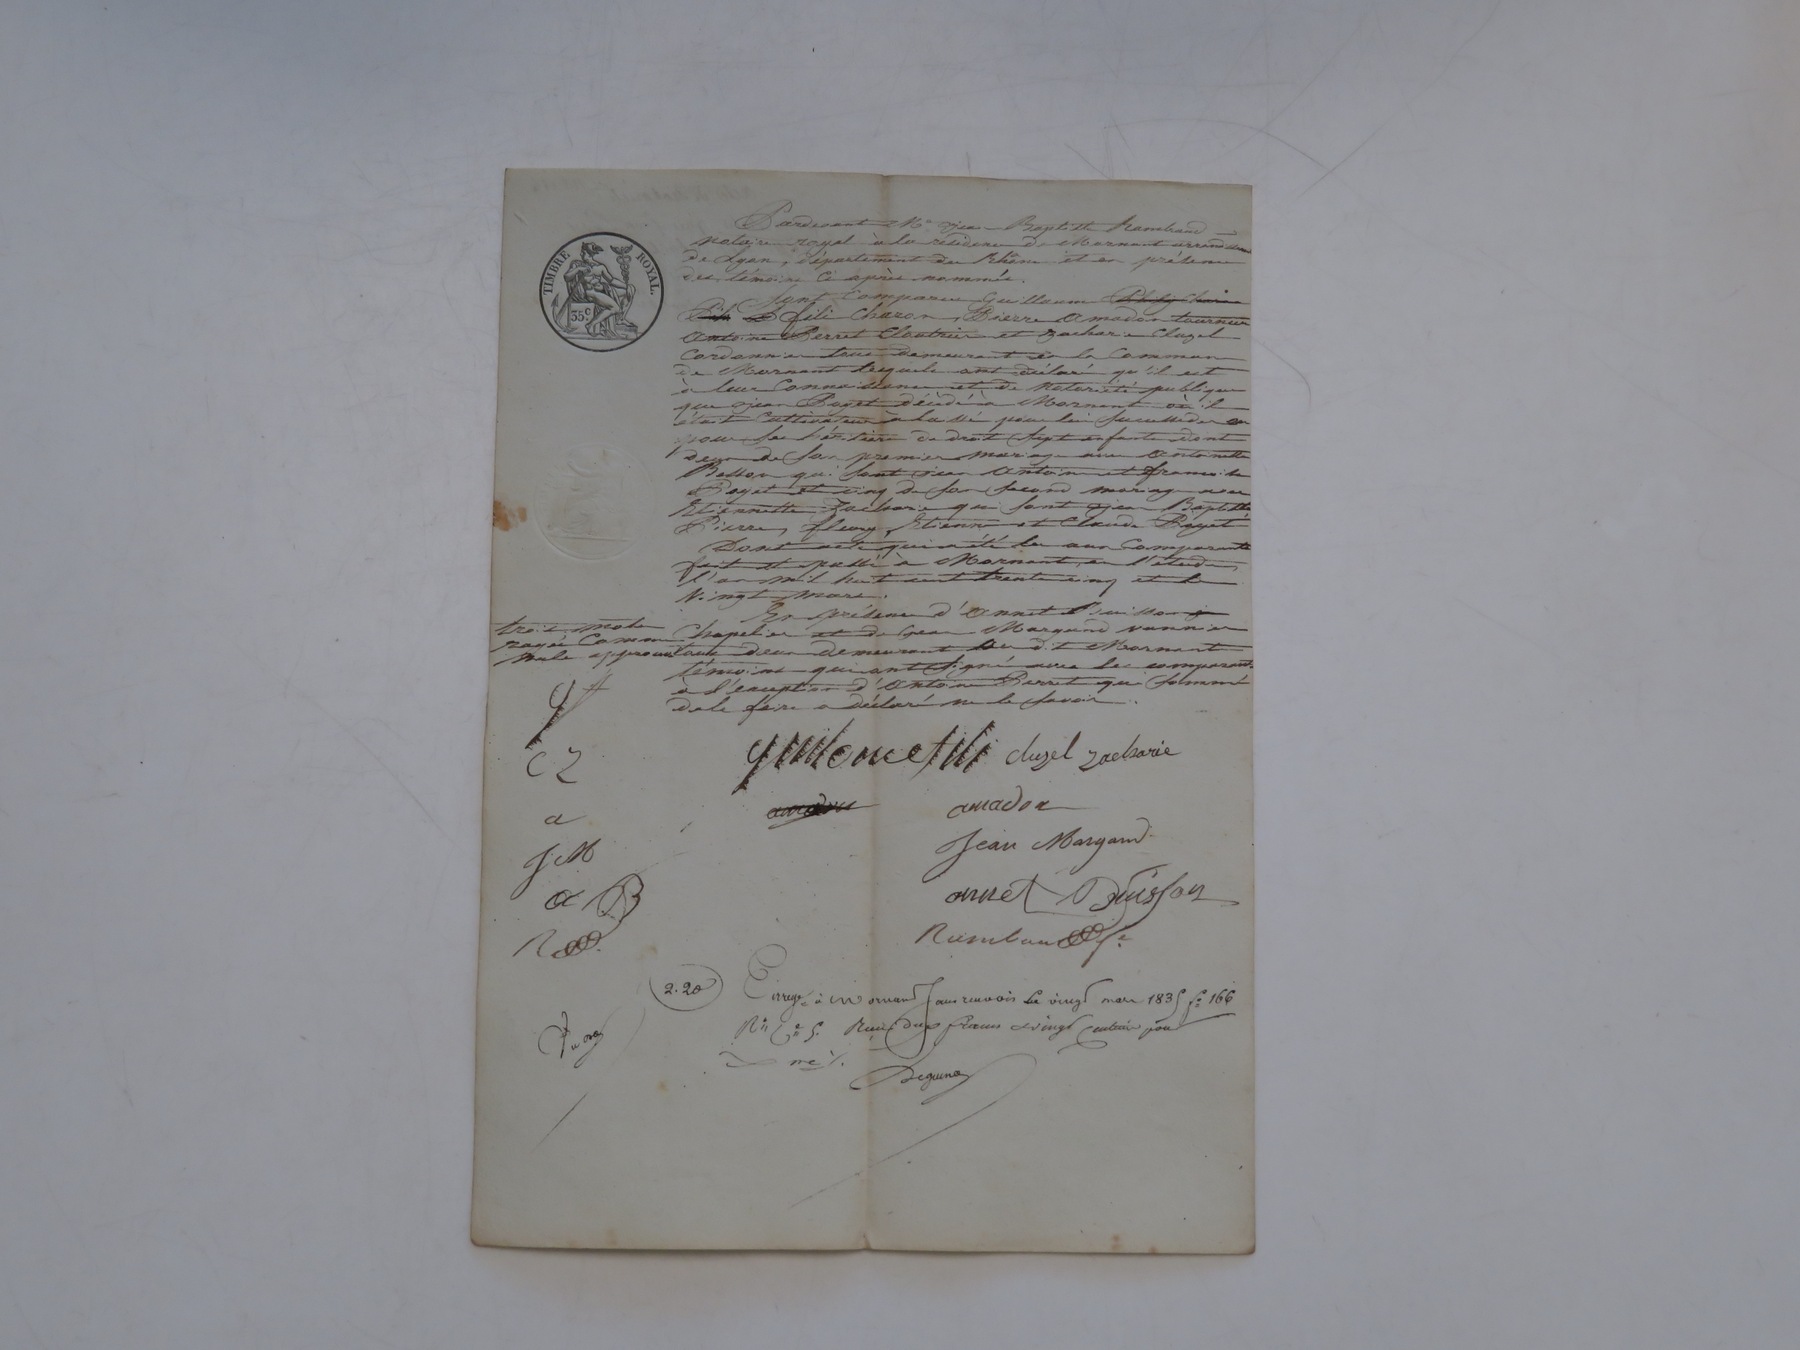 TIMBRE ROYAL.
35 c.
Pardevant Me Jean Baptiste Rambaud
Notaire royal à la résidence de Mornant arrondissement
de Lyon, département du Rhône et en présence
des témoins ci après nommés.
Sont comparus Guillaume
fili charon, Pierre amador tourneur
antoine Perret Cloutrier et zacharie Cluzel
Cordonnier tous demeurant en la Commune
de Mornant lesquels ont déclaré qu'il est
à leur Connaissance et de Notoriété publique
que jean Poyet décédé à Mornant où il
était Cultivateur a laissé pour lui succéder et
pour ses héritiers de droit sept enfants dont
deux de son premier mariage avec antoinette
Besson qui sont jean antoine et françoise
Poyet et cinq de son second mariage avec
Etiennette Zacharie qui sont jean Baptiste
Pierre, fleury, Etienne et Claude Poyet
Dont acte qui a été lu aux Comparants
fait et passé à Mornant, en l'étude,
l'an mil huit cent trente cinq et le
Vingt mars.
En présence d'annet Buisson
Chapelier et de Jean Margand vannier
tous deux demeurant au dit Mornant
témoins qui ont signé avec les comparants
à l'exception d'antoine Perret qui sommé
de le faire a déclaré ne le savoir.
trois mots
rayés Comme
nuls approuvés
gf
c z
a
J M
a B
R
guilome fili cluzel zacharie
amador amador
Jean Margand
annet Buisson
Rambaud
2.20
Enregé à Mornant sans renvois le vingt mars 1835 fo 166
Ro Ces 5. Reçu deux francs et vingt centimes pour